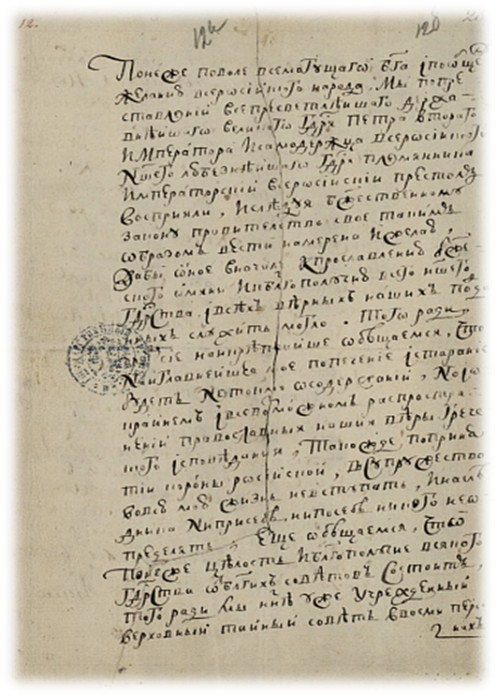 12.
126
120
Понеже поволе всемогущаго бга іпообще
желанию всеросискаго народа. Мы попре
ставленіи всепресветлейшаго держа-
внейшаго великаго Гдря Петра втораго
Императора Исамодержца всеросискаго
Ншего любезнейшаго Гдря племянника
Императорскиі всеросискиі престолъ
восприяли, Ислѣдуя бжественному
закону правителство свое такимъ
образомъ вести намерена Ижелаю,
Дабы оное вначале кпрославлению бже-
ского имяни Икблагополучию всего ншего
Гдрства івсѣхъ вѣрныхъ нашихъ подда
нныхъ служить могло. Того ради,
чрезсие наикрепчайше обещаемся, что
Наиглавнейшее мое попечение істарание
будетъ Нетокмо осодержаниі, Ноіо
крайнемъ івсевозможномъ распростра
нениі православныя нашея вѣры грече
ского ісповѣдания, Такожде поприня
тиі короны росискоі, Всупружество
вовсю мою жизнь невступать, Инаслѣ
дника Ниприсебѣ, нипосебѣ никого нео
пределять. Еще обещаемся, что
Понеже цѣлость Иблгополучие всякого
Гдрства отблгихъ совѣтовъ состоитъ,
Того ради мы ннѣ уже учрежденный
верховный тайный совѣтъ ввосми пер